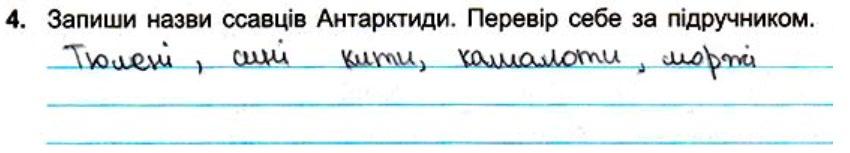 4. Запиши назви ссавців Антарктиди. Перевір себе за підручником.
Тюлені, сині кити, кашалоти, моржі